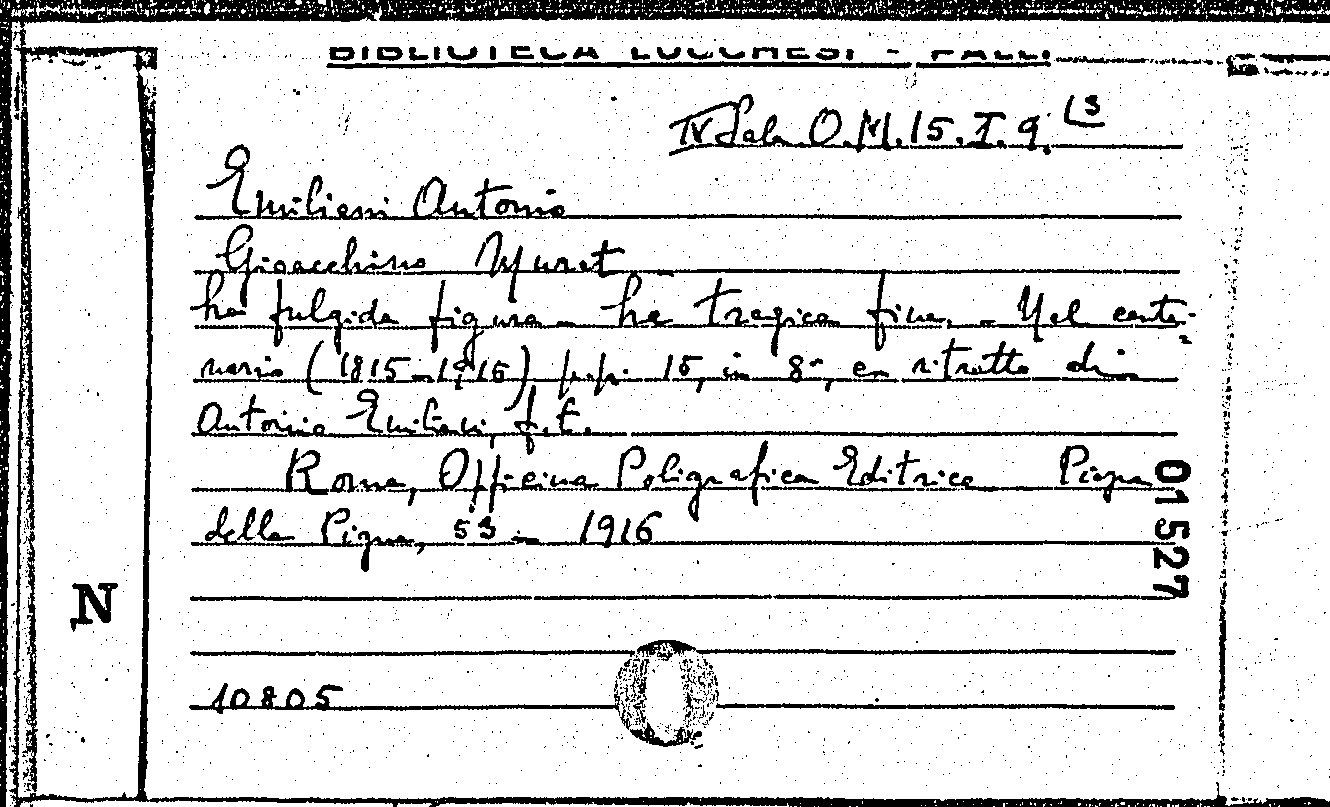 BIBLIOTECA LUCCHESI - PALLI
IV Sala O.M.15.I.9. 13
Emiliani Antonio
Gioacchino Murat
La fulgida figura - La tragica fine. - Nel cente-
nario (1815-1915) pp. 15, in 8º, con ritratto di
Antonio Emiliani, f.t.
Roma, Officina Poligrafica Editrice Piazza
della Pigna, 53 - 1916
01527
N
10805